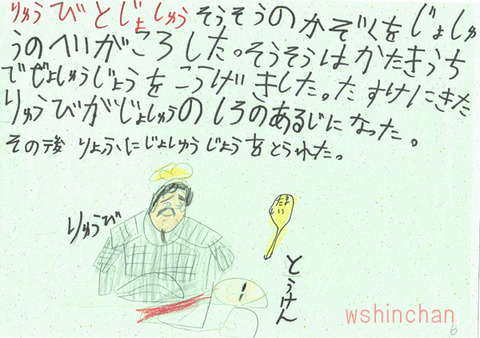 りゅうびとじょしゅう そうそうのかぞくをじょしゅ
うのへいがころした。そうそうはかたきうち
でじょしゅうじょうをこうげきしました。たすけにきた
りゅうびがじょしゅうのしろのあるじになった。
その後りょふにじょしゅうじょうをとられた。
りゅうび
とうけん
wshinchan
6